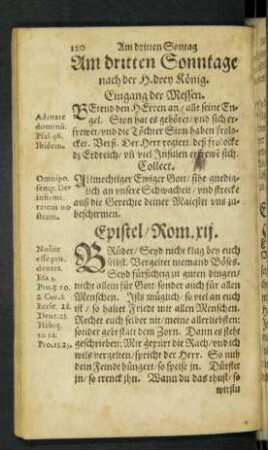 120 Am dritten Sontag
Am dritten Sonntage
nach der H. drey König.
Eingang der Messen.
Adorate
dominū.
Psal. 96.
Ibidem.
BEtend den HErren an / alle seine En-
gel. Sion hat es gehöret / vnd sich er-
frewet / vnd die Töchter Sion haben frolo-
cket. Verß. Der Herr regiert / deß frolocke
dz Erdreich / vñ viel Insulen erfrewē sich.
Collect.
Omnipo.
semp. De⁹
infirmi-
tatem no
stram.
Allmechtiger Ewiger Gott / sihe gnedig-
lich an vnsere Schwacheit / vnd strecke
auß die Gerechte deiner Maiestet vns zu-
beschirmen.
Epistel / Rom. xij.
Nolite
esse pru-
dentes.
Esa. 5.
Pro. 3. 20.
2. Cor. 8
Eccle. 28.
Deut. 23
Hebrę.
10. 12.
Pro. 15. 25.
BRüder / Seyd nicht klug bey euch
selbst. Vergeltet niemand Böses.
Seyd fürsichtig zu guten dingen /
nicht allein für Gott sonder auch für allen
Menschen. Ists müglich / so viel an euch
ist / so haltet Friede mit allen Menschen.
Rechet euch selber nit / meine allerliebsten:
sonder gebt statt dem Zorn. Dann es steht
geschrieben: Mir gepürt die Rach / vnd ich
wils vergelten / spricht der Herr. So nuh
dem Feind hüngert / so speise jn. Dürstet
jn / so trenck jhn. Wann du das thust / so
wirstu